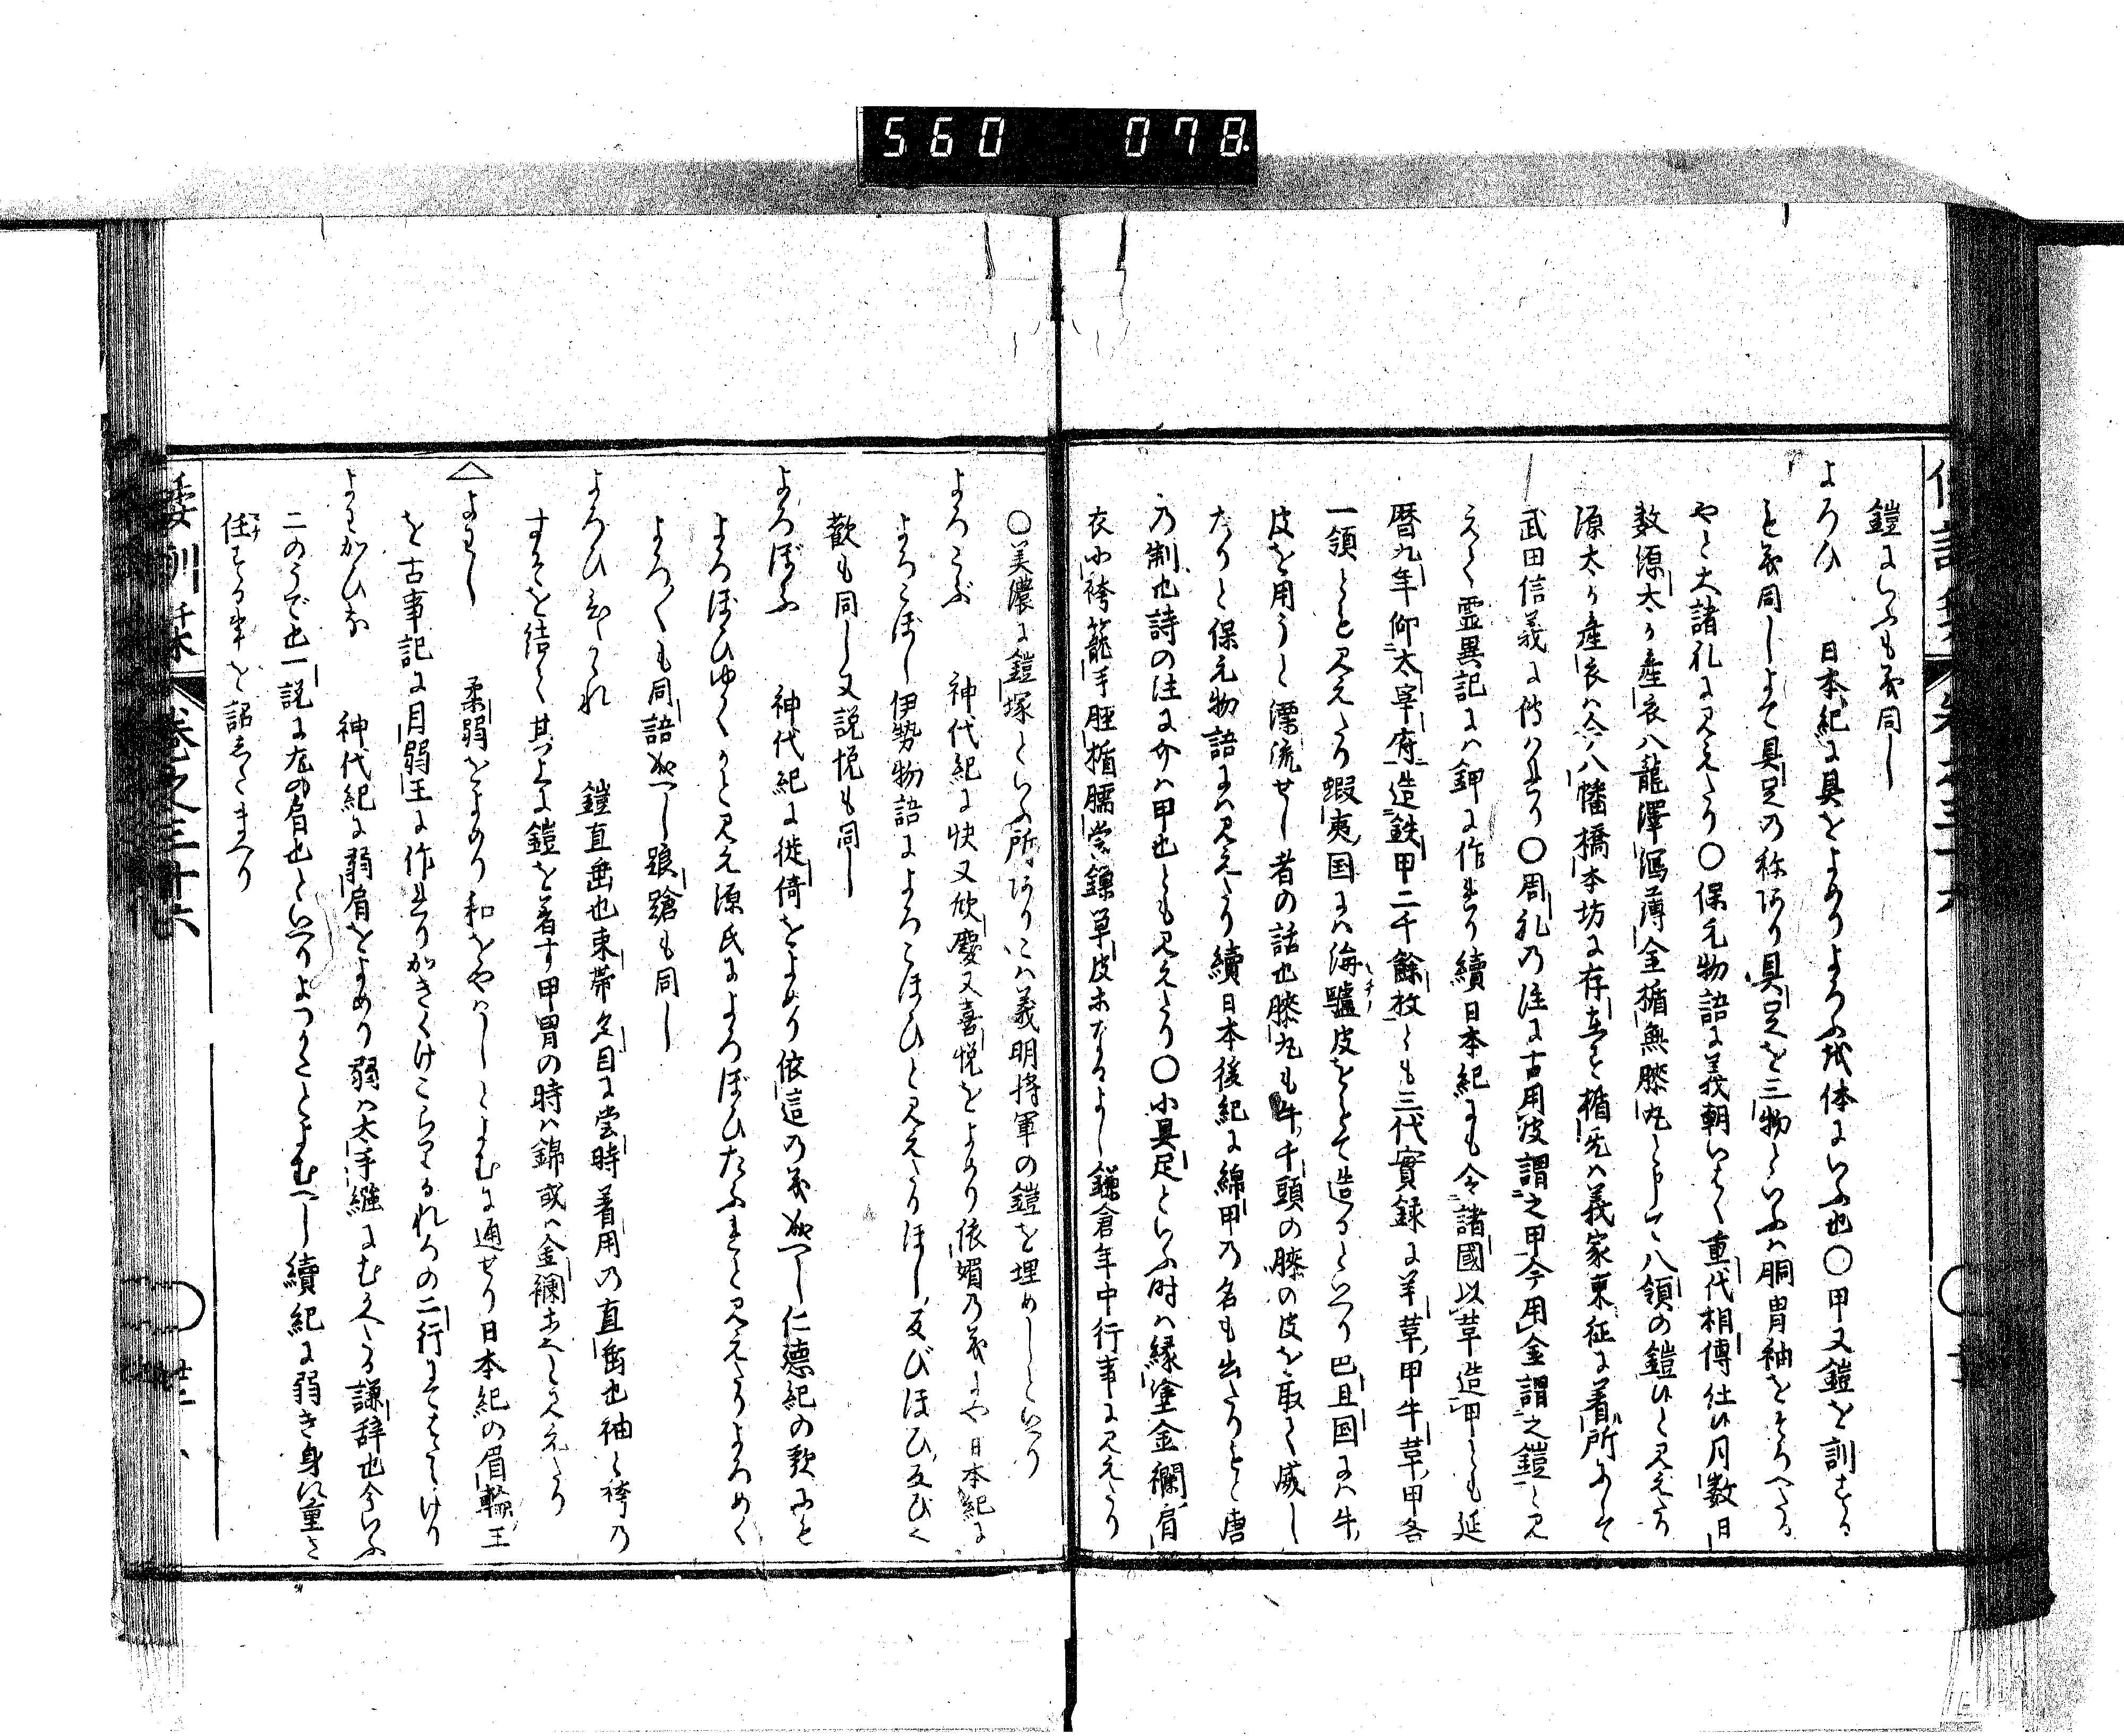 560 078
鎧にいふも義同し
よろひ 日本紀に具をよめりよろふ式体にいふ也○甲又鎧を訓する
も義同しよて具足の称あり具足を三物といふハ胴冑袖をそろへたる
やと大諸礼に見えたり○保元物語に義朝いはく重代相傳仕ひ月数日
数源太か産衣八龍澤瀉薄金楯無膝丸として八領の鎧ひと見えたり
源太か産衣ハ今八幡橋本坊に存在す楯无ハ義家東征に着所にして
武田信義に傳はれり○周礼の注に古用皮謂之甲今用金謂之鎧と見
えて霊異記にハ鉀に作れり續日本紀にも令諸國以革造甲とも延
暦九年仰太宰府造鉄甲二千餘枚とも三代實録に羊革甲牛革甲各
一領ともと見えたり蝦夷国にハ海驢皮をもて造るといへり巴且国にハ牛
皮を用うと漂流せし者の話也膝丸も牛千頭の膝の皮を取て威し
たりと保元物語にハ見えたり續日本後紀に綿甲の名も出たりもと唐
の制也詩の注に介ハ甲也とも見えたり○小具足といふ時ハ縁塗金襴肩
衣小袴籠手脛楯臑當鎌草皮ホなるよし鎌倉年中行事に見えたり
○美濃に鎧塚といふ所ありこハ義明将軍の鎧を埋めしといへり
よろこぶ 神代紀に快又欣慶又喜悦をよめり依媚の義にや日本紀に
よろこぼし伊勢物語によろこほひと見えたりほし反びほひ反ひく
歡も同し又説悦も同し
よろぼふ 神代紀に徙倚をよめり依這の義成へし仁徳紀の歌にも
よろぼひゆくかと見え源氏によろぼひたふれと見えたりよろめく
よろつくも同語成へし踉蹌も同し
よろひひたゝれ 鎧直垂也束帶名目に當時着用の直垂也袖と袴の
すそを結て其上に鎧を着す甲冑の時ハ錦或ハ金襴ホ也と見えたり
△よわし 柔弱をよめり和をやハしとよむに通せり日本紀の眉輪王
を古事記に目弱王に作れりかきくけこらりるれろの二行にてはたらけり
よわかひな 神代紀に弱肩をよめり弱ハ太手繦にむかへる謙辞也今いふ
二のうで也一説に左の肩也といへりよつかたとよむへし續紀に弱き身に重き
任する事を詔したまへり
倭訓栞 巻之三十六